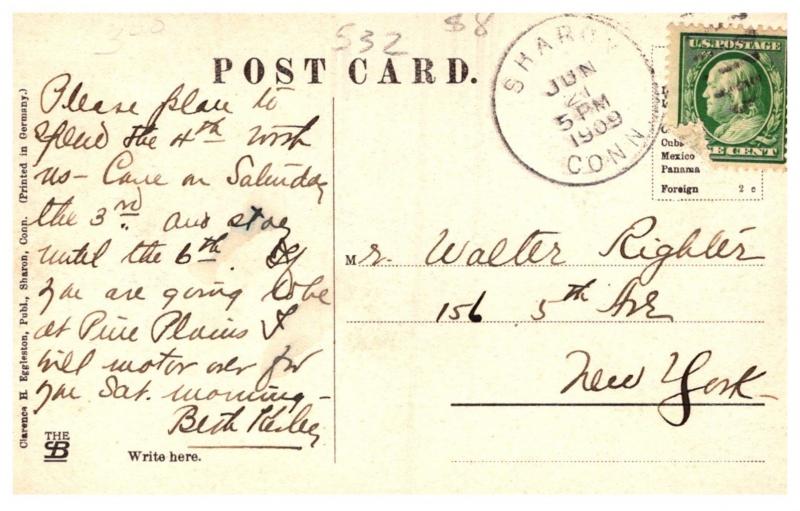 532
88
POST CARD.
SHARON
JUN
21
5 PM
1909
CONN
U.S. POSTAGE
E CENT
Cuba
Mexico
Panama
Foreign 2 c
Please plan to
spend the 4th with
us - Come on Saturday
the 3rd. and stay
until the 6th. If
you are going to be
at Pine Plains I
will motor over for
you Sat. morning -
Beth
Mr. Walter Righter
156 5th Ave
New York
Clarence H. Eggleston, Publ., Sharon, Conn. (Printed in Germany.)
THE
SB
Write here.